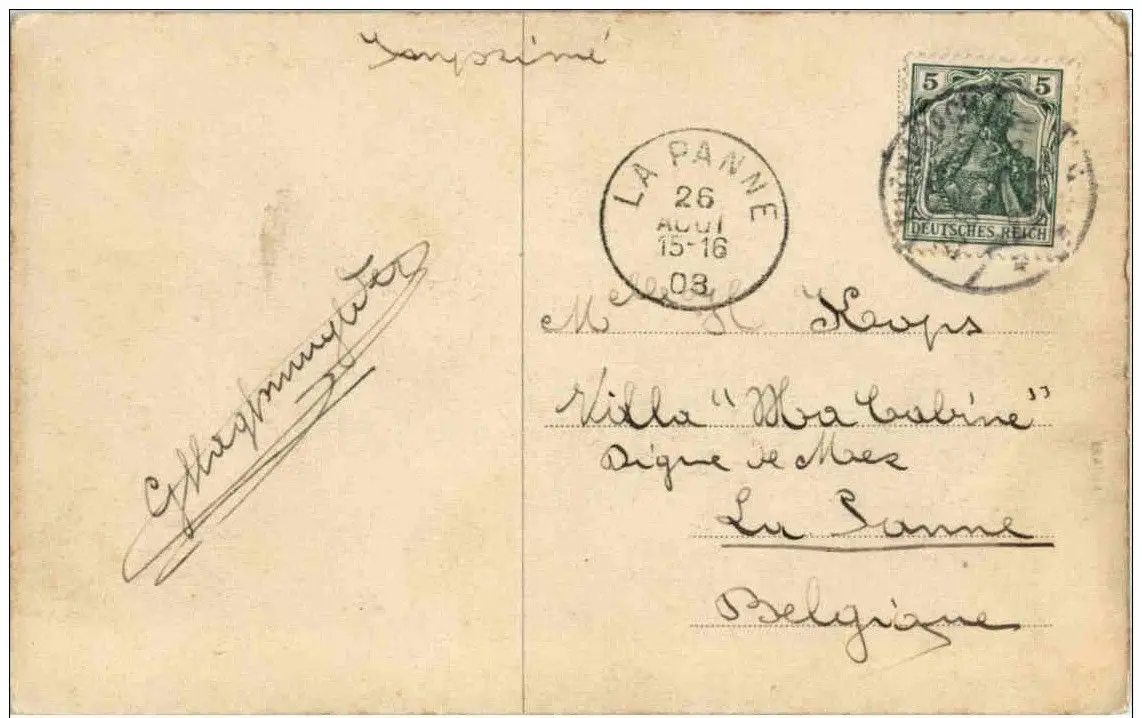 Imprimé
5 5
DEUTSCHES REICH
LA PANNE
26
AOUT
15-16
08
Kops
Villa "Ma Cabine"
Digue de Mer
La Panne
Belgique